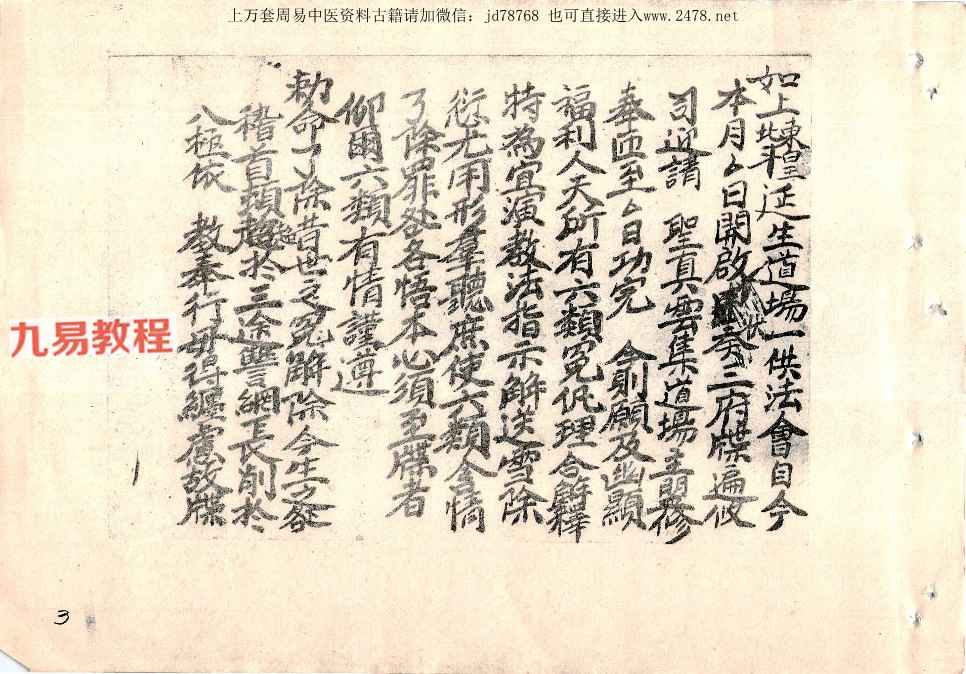 上万套周易中医资料古籍请加微信：jd78768 也可直接进入www.2478.net
如上竦皇延生道場一供法會自今
本月厶日開啟奏三府牒遍攸
司迎請 聖真雲集道場主盟修
奉迊至厶日功完 今則願及幽顯
福利人天所有六類冤仇理合解釋
特為宣演教法指示解送雪除
愆尤用形羣聽庶使六類含情
了除罪愆各悟本心須至牒者
仰爾六類有情謹遵
勅命了除昔世之冤解除今生之愆
稽首頻趍於三途譬網長削於
八極依 教奉行毋得纏慮故牒
九易教程
3